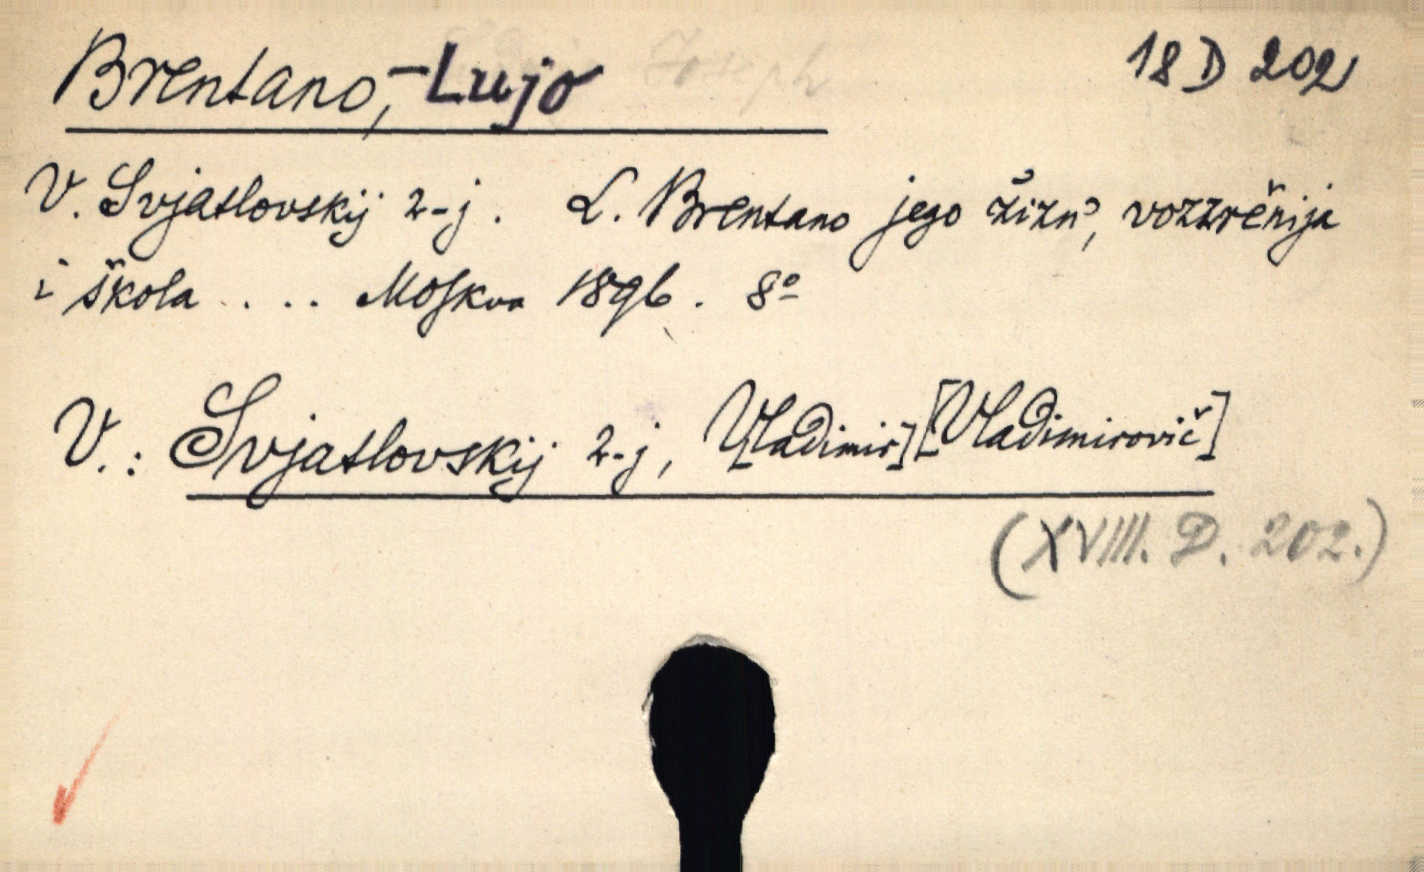 Brentano, - Lujo Joseph 18 D 202
V. Svjatlovskij 2-j. L. Brentano jego žizn', vozzrěnija
i škola .... Moskva 1896. 8º
V.: Svjatlovskij 2-j, V[ladimir] [Vladimirovič]
(XVIII. D. 202.)